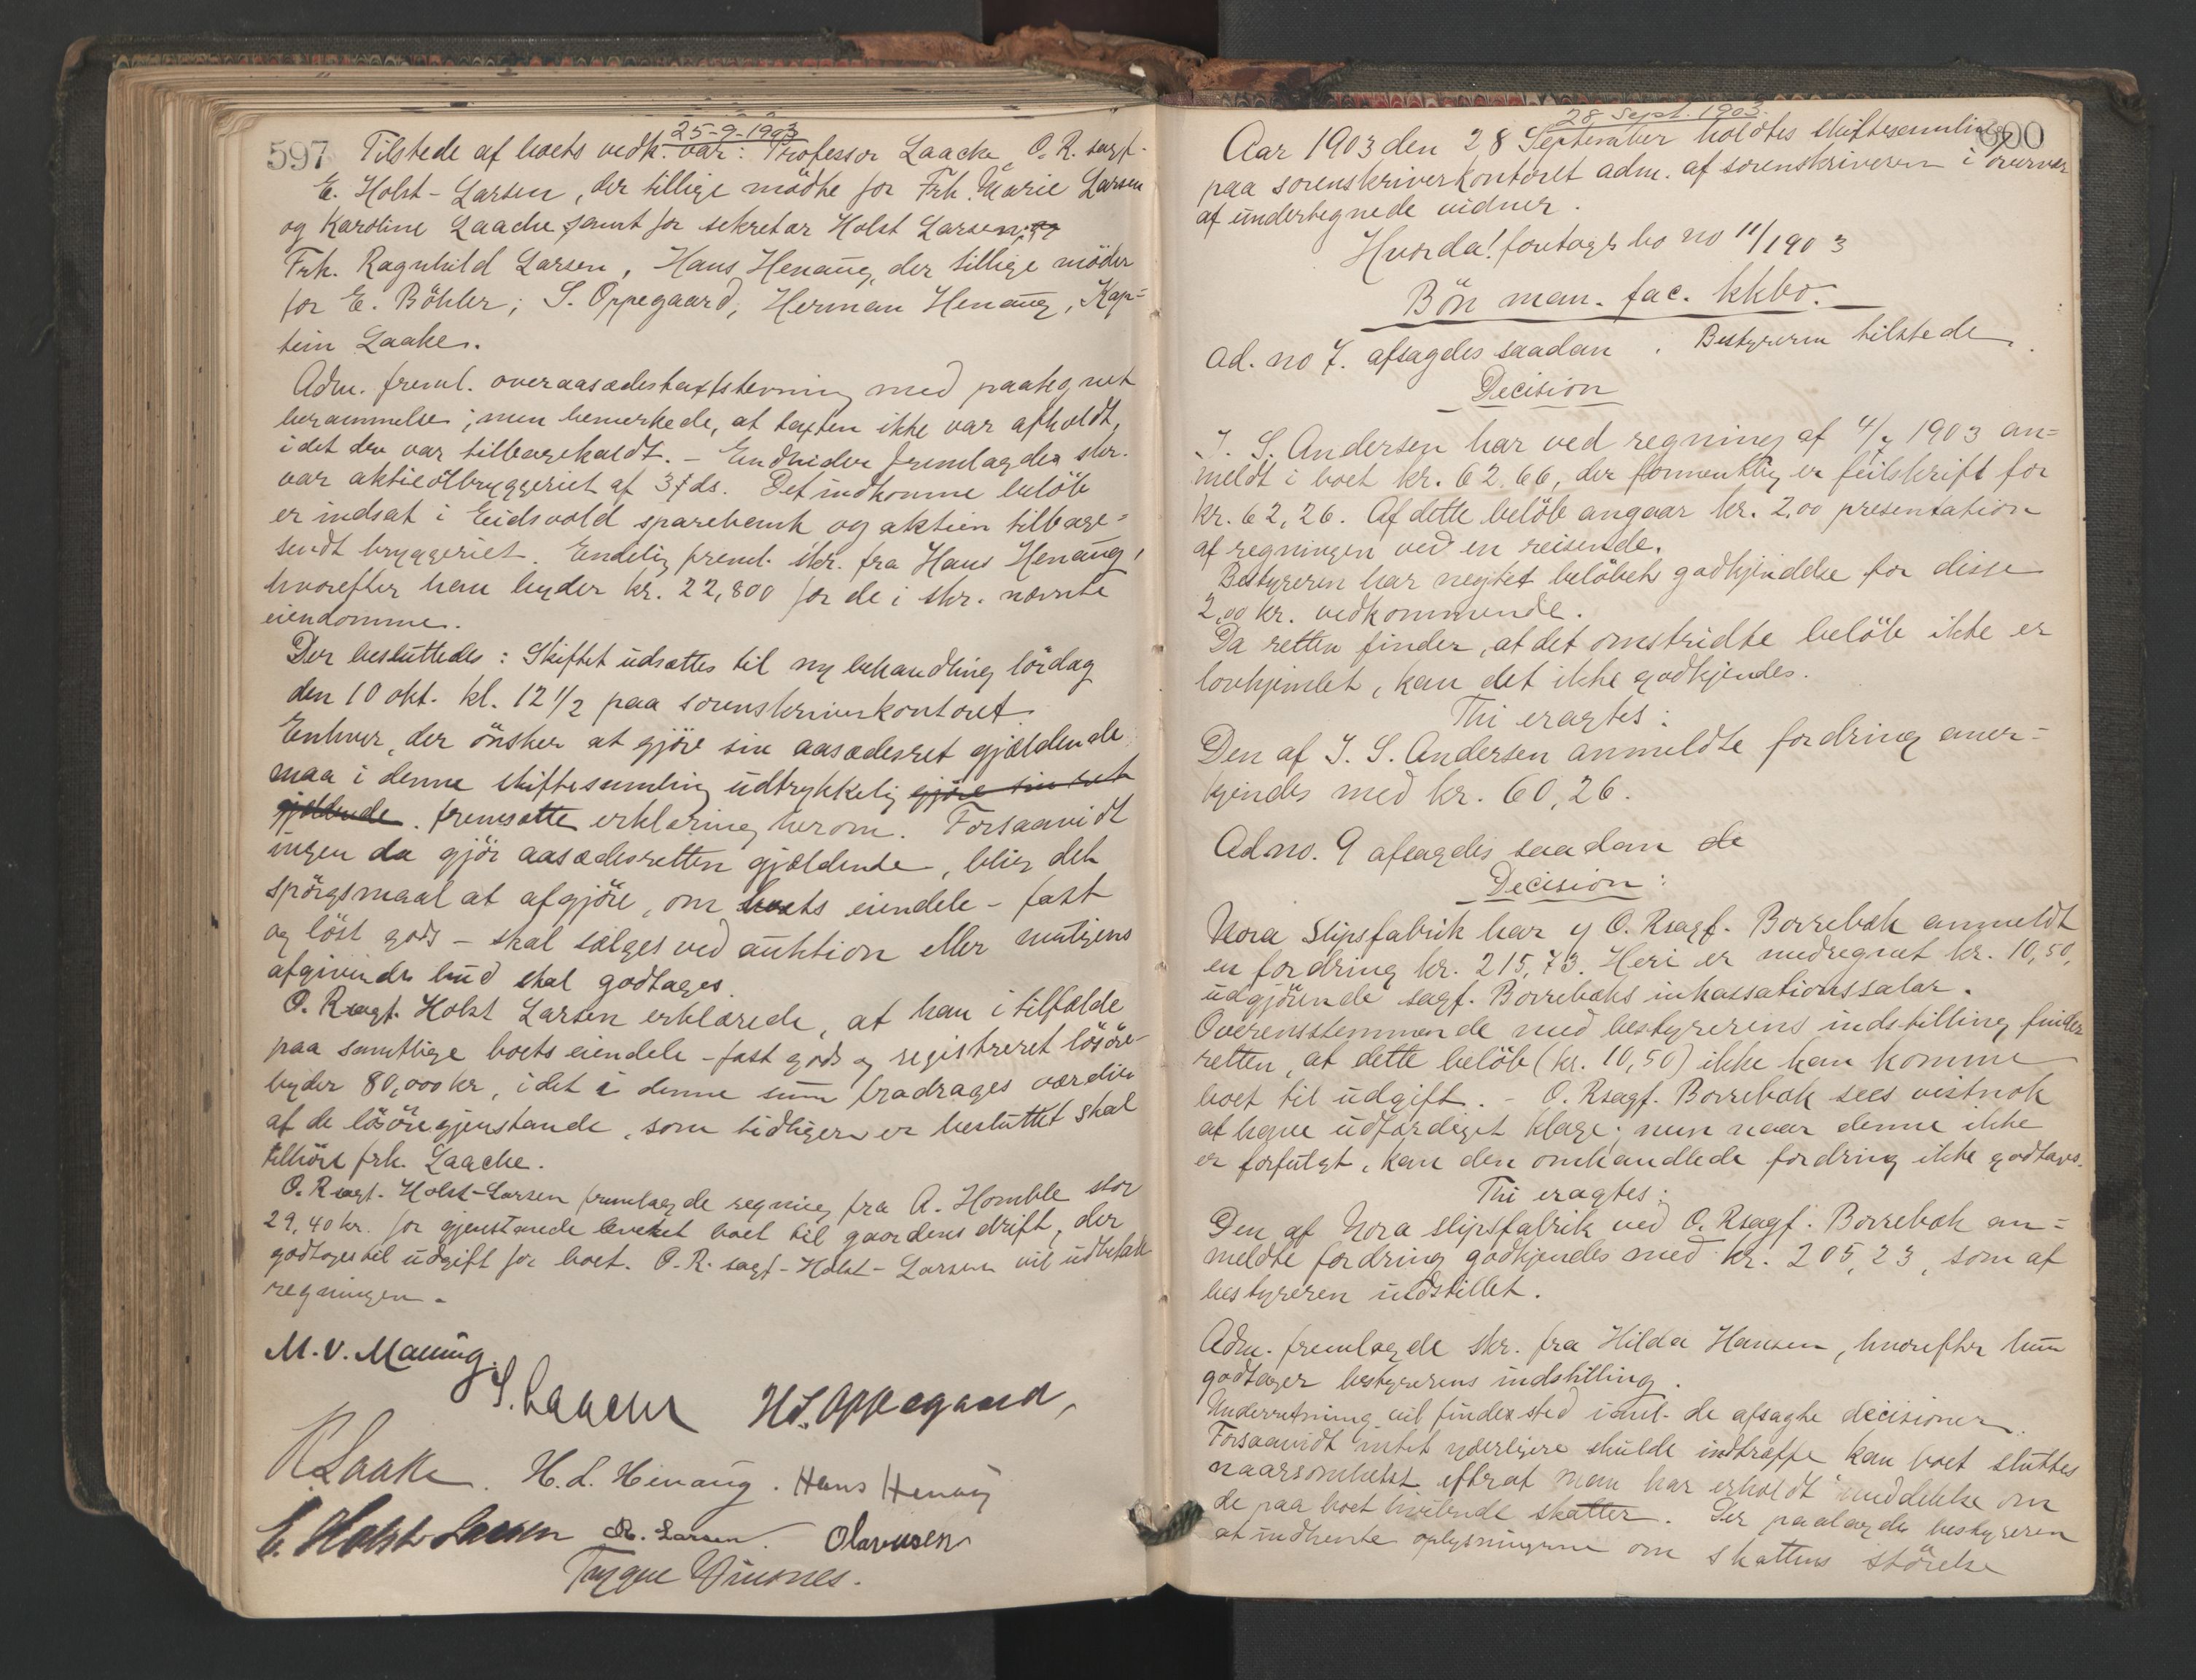 25-9-1903
597 Tilstede af boets vedk. var: Professor Laache, O. R. sagf.
E. Holst-Larsen, der tillige mödte for Frk. Marie Larsen
og Karoline Laache samt for sekretær Holst Larsen,
Frk. Ragnhild Larsen, Hans Henaug, der tillige möder
for E. Böhler; S. Oppegaard, Herman Henaug, Kap-
tein Laake.
Adm. freml. overaasædestaxtstevning med paategnet
berammelse; men bemerkede, at taxten ikke var afholdt,
idet den var tilbagekaldt. - Endvider fremlagdes skr.
var aktieölbryggeriet af 3/7 ds. Det indkomne belöb
er indsat i Eidsvold sparebank og aktien tilbage-
sendt bryggeriet. Endelig freml. skr. fra Hans Henaug,
hvorefter han byder kr. 22,800 for de i skr. nævnte
eiendomme.
Der besluttedes: Skiftet udsættes til ny behandling lördag
den 10 okt. kl. 12 1/2 paa sorenskriverkontoret.
Enhver, der önsker at gjöre sin aasædesret gjældende
maa i denne skiftesamling udtrykkelig gjöre sin ret
gjældende. fremsætte erklæring herom. Forsaavidt
ingen da gjör aasædesretten gjældende, blir det
spörgsmaal at afgjöre, om boets eiendele - fast
og löst gods - skal sælges ved auktion eller mulgens
afgivende bud skal godtages.
O. Rsagf. Holst Larsen erklærede, at han i tilfælde
paa samtlige boets eiendele - fast gods og registreret lösöre -
byder 80,000 kr, idet i denne sum fradrages værdien
af de lösöregjenstande, som tidligere er besluttet skal
tilhöre frk. Laache.
O. Rsagf. Holst-Larsen fremlagde regning fra A. Homble stor
29,40 kr. for gjenstande leveret boet til gaardens drift, der
godtoges til udgift for boet. O. R. sagf. Holst-Larsen vil udbetale
regningen.
M. V. Mauung.
S. Laache H. S. Oppegaard,
R. Laake. H. L. Henaug. Hans Henaug
E. Holst Larsen R. Larsen. Olavesen
Trygve
28 Sept. 1903.
600
Aar 1903 den 28 September holdtes skiftesamling
paa sorenskriverkontoret adm. af sorenskriveren i overvær
af undertegnede vidner.
Hvorda! foretoges bo no 11/1903
Bön man. fac. kkbo.
ad. no 7. afsagdes saadan. Bestyreren tilstede.
Decision
J. S. Andersen har ved regning af 4/7 1903 an-
meldt i boet kr. 62.66, der formentlig er feilskrift for
kr. 62,26. Af dette belöb angaar kr. 2,00 presentation
af regningen ved en reisende.
Bestyreren har negtet belöbets godkjendelse for disse
2,00 kr. vedkommende.
Da retten finder, at det omstridte belöb ikke er
lovhjemlet, kan det ikke godkjendes.
Thi eragtes:
Den af J. S. Andersen anmeldte fordring aner-
kjendes med kr. 60,26.
Ad no. 9 afsagdes saadan de
Decision:
Nora Slipsfabrik har v O. Rsagf. Borrebæk anmeldt
en fordring kr. 215,73. Heri er medregnet kr. 10,50,
udgjörende sagf. Borrebæks inkassationssalær.
Overensstemmende med bestyrerens indstilling finder
retten, at dette belöb (kr. 10,50) ikke kan komme
boet til udgift. - O. Rsagf. Borrebæk sees vistnok
at have udfærdiget klage; men naar denne ikke
er forfulgt, kan den omhandlede fordring ikke godtages.
Thi eragtes:
Den af Nora slipsfabrik ved O. Rsagf. Borrebæk an-
meldte fordring godkjendes med kr. 205,23, som af
bestyreren indstillet.
Adm. fremlagde skr. fra Hilda Hansen, hvorefter hun
godtager bestyrerens indstilling.
Underretning vil finde sted de afsagte decisioner.
Forsaavidt intet yderligere skulde indtræffe kan boet sluttes
naarsomhelst efterat man har erholdt meddelelse om
de paa boet hvilende skatter. Der paalagdes bestyreren
at indhente oplysningerne om skattens störelse